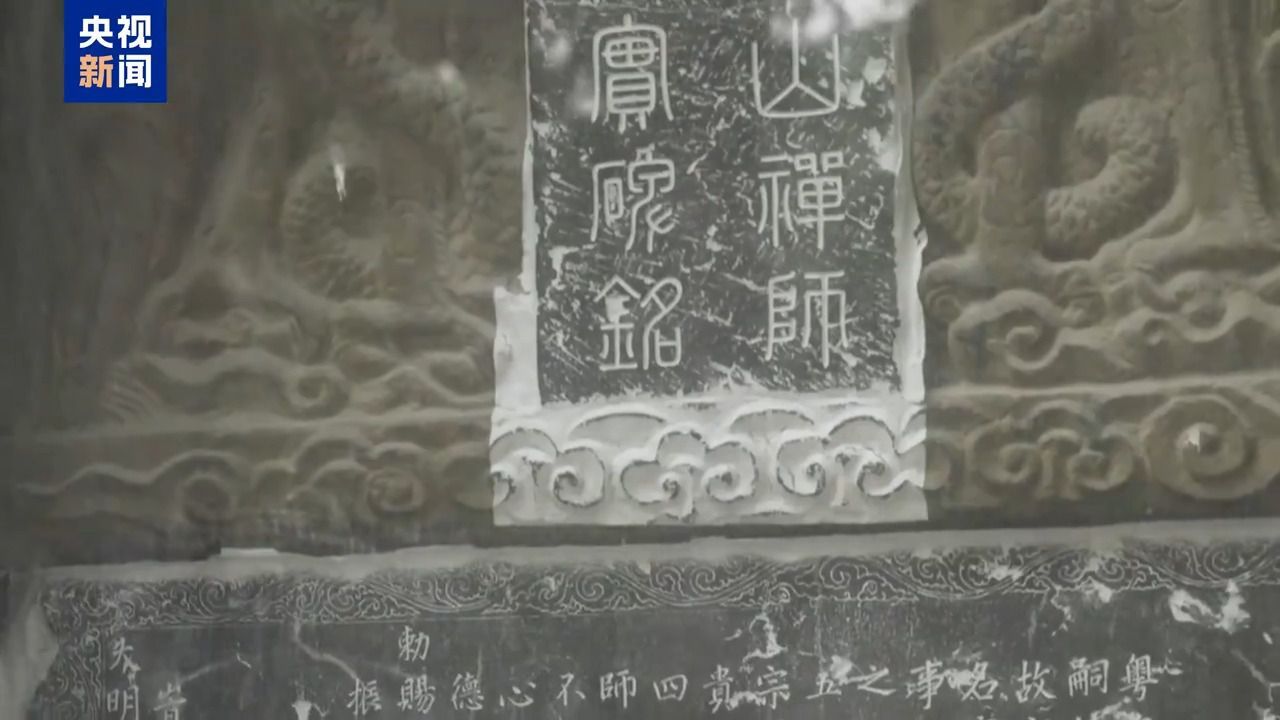 央视
新闻
山禪師
實碑銘
粵
嗣
故
名
事
之
五
宗
貴
四
師
不
心
德
勅賜
振
大明